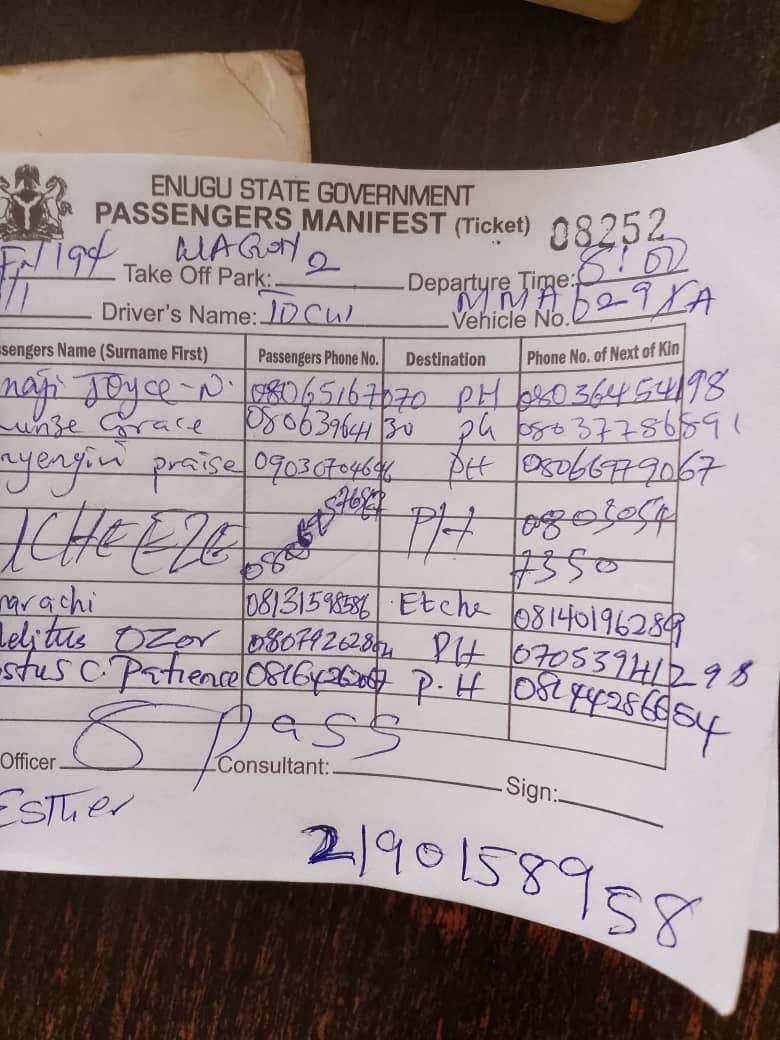 ENUGU STATE GOVERNMENT
PASSENGERS MANIFEST (Ticket) 08252
Take Off Park: 2 Departure Time: 8:00
Driver's Name: Vehicle No. MMA 629 XA
sengers Name (Surname First) Passengers Phone No. Destination Phone No. of Next of Kin
naji Joyce-N. 08065167070 PH 08036454198
unze Grace 08063964130 PH 08037786891
nyenyiri praise 09030704696 PH 08066779067
ICHEEZE PH 0803054
7350
arachi 08131598586 Etche 08140196289
elitus OZOR PH 07053941298
stus C. Patience P.H 08144286654
8 pass
Officer Consultant: Sign:
Esther
2190158958